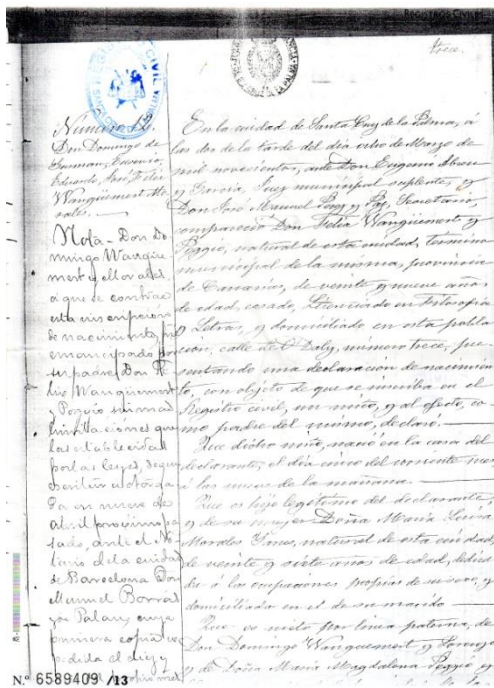 trece.
Número 42.
Don Domingo de
Guzman, Eusebio,
Eduardo, José, Felix
Wangüemert Mo
rales.
Nota - Don Do
mingo Wangüe
mert y Morales
a que se contrae
esta inscripcion
de nacimiento, fue
emancipado por
su padre, Don Fe
lix Wangüemert
y Poggio sin mas
limitaciones que
las establecidas
por las leyes, segun
escritura otorga
da en nueve de
abril proximo pa
sado, ante el No
tario de la ciudad
de Barcelona Don
Manuel Borrás
y de Palau, cuya
primera copia
pedida al diez y
En la ciudad de Santa Cruz de la Palma, á
las dos de la tarde del dia ocho de Marzo de
mil novecientos, ante Don Eugenio Abreu
y García, Juez municipal suplente, y
Don José Manuel Perez y Paz, Secretario,
compareció Don Felix Wangüemert y
Poggio, natural de esta ciudad, término
municipal de la misma, provincia
de Canarias, de veinte y nueve años
de edad, casado, Licenciado en Filosofia
y Letras, y domiciliado en esta pobla
cion, calle de O'Daly, número trece, pre
sentando una declaración de nacimien
to, con objeto de que se inscriba en el
Registro civil, un niño, y al efecto, co
mo padre del mismo, declaró:
Que dicho niño, nació en la casa del
declarante, el dia cinco del corriente mes
á las nueve de la mañana.
Que es hijo legitimo del declarante,
y de su mujer Doña María Luisa
Morales, natural de esta ciudad,
de veinte y siete años de edad, dedica
da á las ocupaciones propias de su sexo, y
domiciliada en el de su marido.
Que es nieto por línea paterna, de
Don Domingo Wangüemert y Lorenzo
y de Doña María Magdalena Poggio y
N.º 6589409 /13